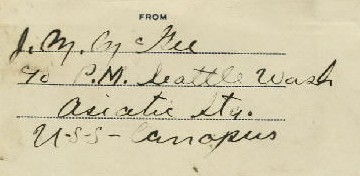 FROM
J. M. McGee
c/o P.M. Seattle Wash
Asiatic Stq.
U-S-S- Canopus